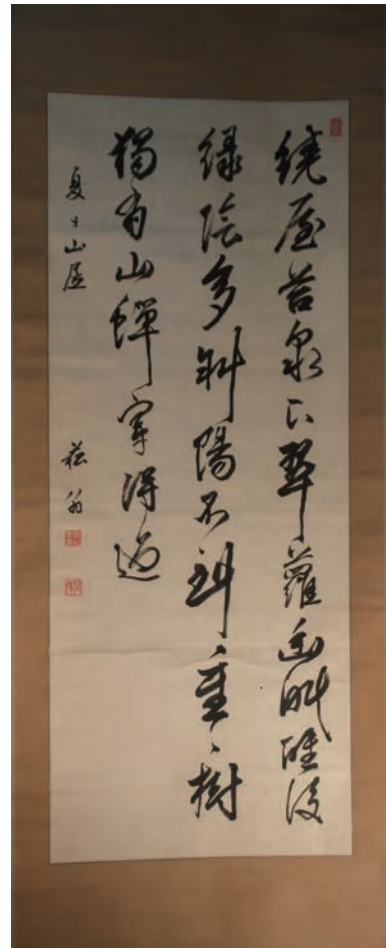 繞屋苔泉下翠蘿幽眠醒後
緑陰多斜陽不到重〻樹
獨有山蟬穿得過
夏日山居 菘翁